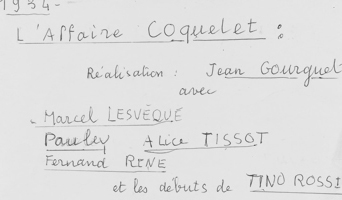 1934-
L'Affaire Coquelet :
Réalisation : Jean Gourguet
avec
- Marcel LESVÈQUE
Pauley Alice TISSOT
Fernand RENE
et les débuts de TINO ROSSI